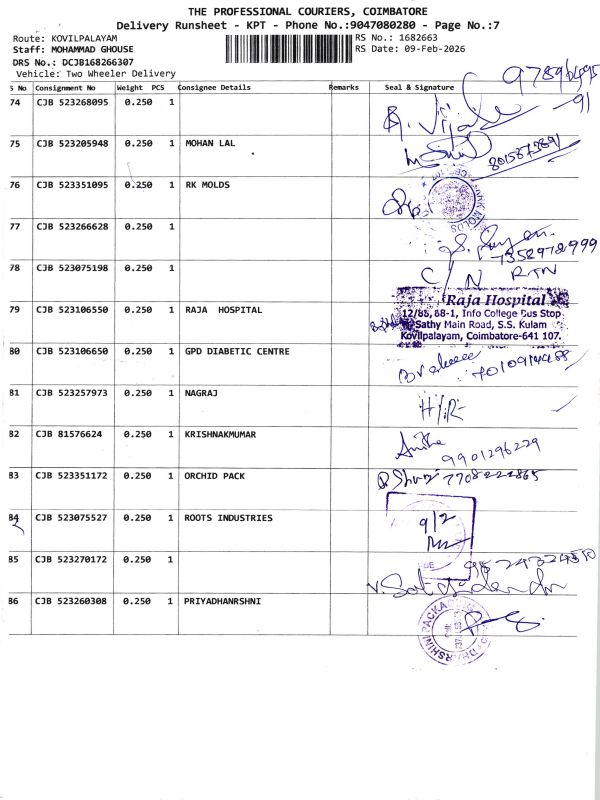 THE PROFESSIONAL COURIERS, COIMBATORE
Delivery Runsheet - KPT - Phone No.:9047080280 - Page No.:7
Route: KOVILPALAYAM
RS No.: 1682663
Staff: MOHAMMAD GHOUSE
RS Date: 09-Feb-2026
DRS No.: DCJB168266307
Vehicle: Two Wheeler Delivery
S No Consignment No Weight PCS Consignee Details Remarks Seal & Signature
74 CJB 523268095 0.250 1
91
75 CJB 523205948 0.250 1 MOHAN LAL
76 CJB 523351095 0.250 1 RK MOLDS
77 CJB 523266628 0.250 1
7358978999
78 CJB 523075198 0.250 1 C/N RTN
79 CJB 523106550 0.250 1 RAJA HOSPITAL
Raja Hospital
12/88, 88-1, Info College Bus Stop
Sathy Main Road, S.S. Kulam
Kovilpalayam, Coimbatore-641 107.
80 CJB 523106650 0.250 1 GPD DIABETIC CENTRE
81 CJB 523257973 0.250 1 NAGRAJ
82 CJB 81576624 0.250 1 KRISHNAKMUMAR
Anitha
9901296229
83 CJB 523351172 0.250 1 ORCHID PACK
7708222865
84 CJB 523075527 0.250 1 ROOTS INDUSTRIES
9/2
85 CJB 523270172 0.250 1
86 CJB 523260308 0.250 1 PRIYADHANRSHNI